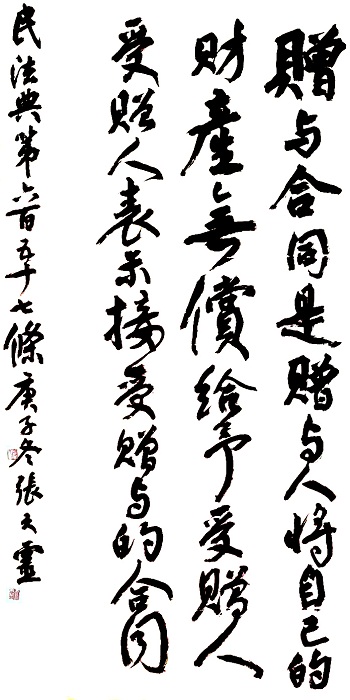 贈与合同是贈与人将自己的
財產無償給予受贈人
受贈人表示接受贈与的合同
民法典第六百五十七條庚子冬張天靈